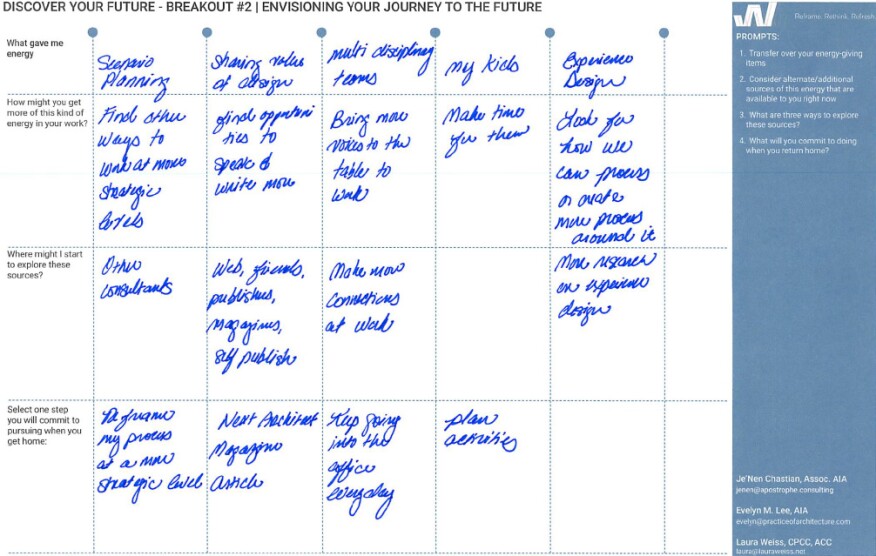 DISCOVER YOUR FUTURE - BREAKOUT #2 | ENVISIONING YOUR JOURNEY TO THE FUTURE
What gave me
energy
Scenario
Planning
Sharing value
of design
multi disciplinary
teams
my kids
Experience
Design
How might you get
more of this kind of
energy in your work?
Find other
ways to
work at more
strategic
levels
find opportuni
ties to
speak &
write more
Bring more
voices to the
table to
work
Make time
for them
Look for
how we
can process
or create
more process
around it
Where might I start
to explore these
sources?
Other
consultants
Web, friends,
publishers,
Magazines,
self publish
Make more
connections
at work
More research
on experience
design
Select one step
you will commit to
pursuing when you
get home:
my process
at a more
strategic level
Next Architect
Magazine
Article
Keep going
into the
office
everyday
plan
activities
Reframe. Rethink. Refresh.
PROMPTS:
1. Transfer over your energy-giving
items
2. Consider alternate/additional
sources of this energy that are
available to you right now
3. What are three ways to explore
these sources?
4. What will you commit to doing
when you return home?
Je'Nen Chastian, Assoc. AIA
jenen@apostrophe.consulting
Evelyn M. Lee, AIA
evelyn@practiceofarchitecture.com
Laura Weiss, CPCC, ACC
laura@lauraweiss.net